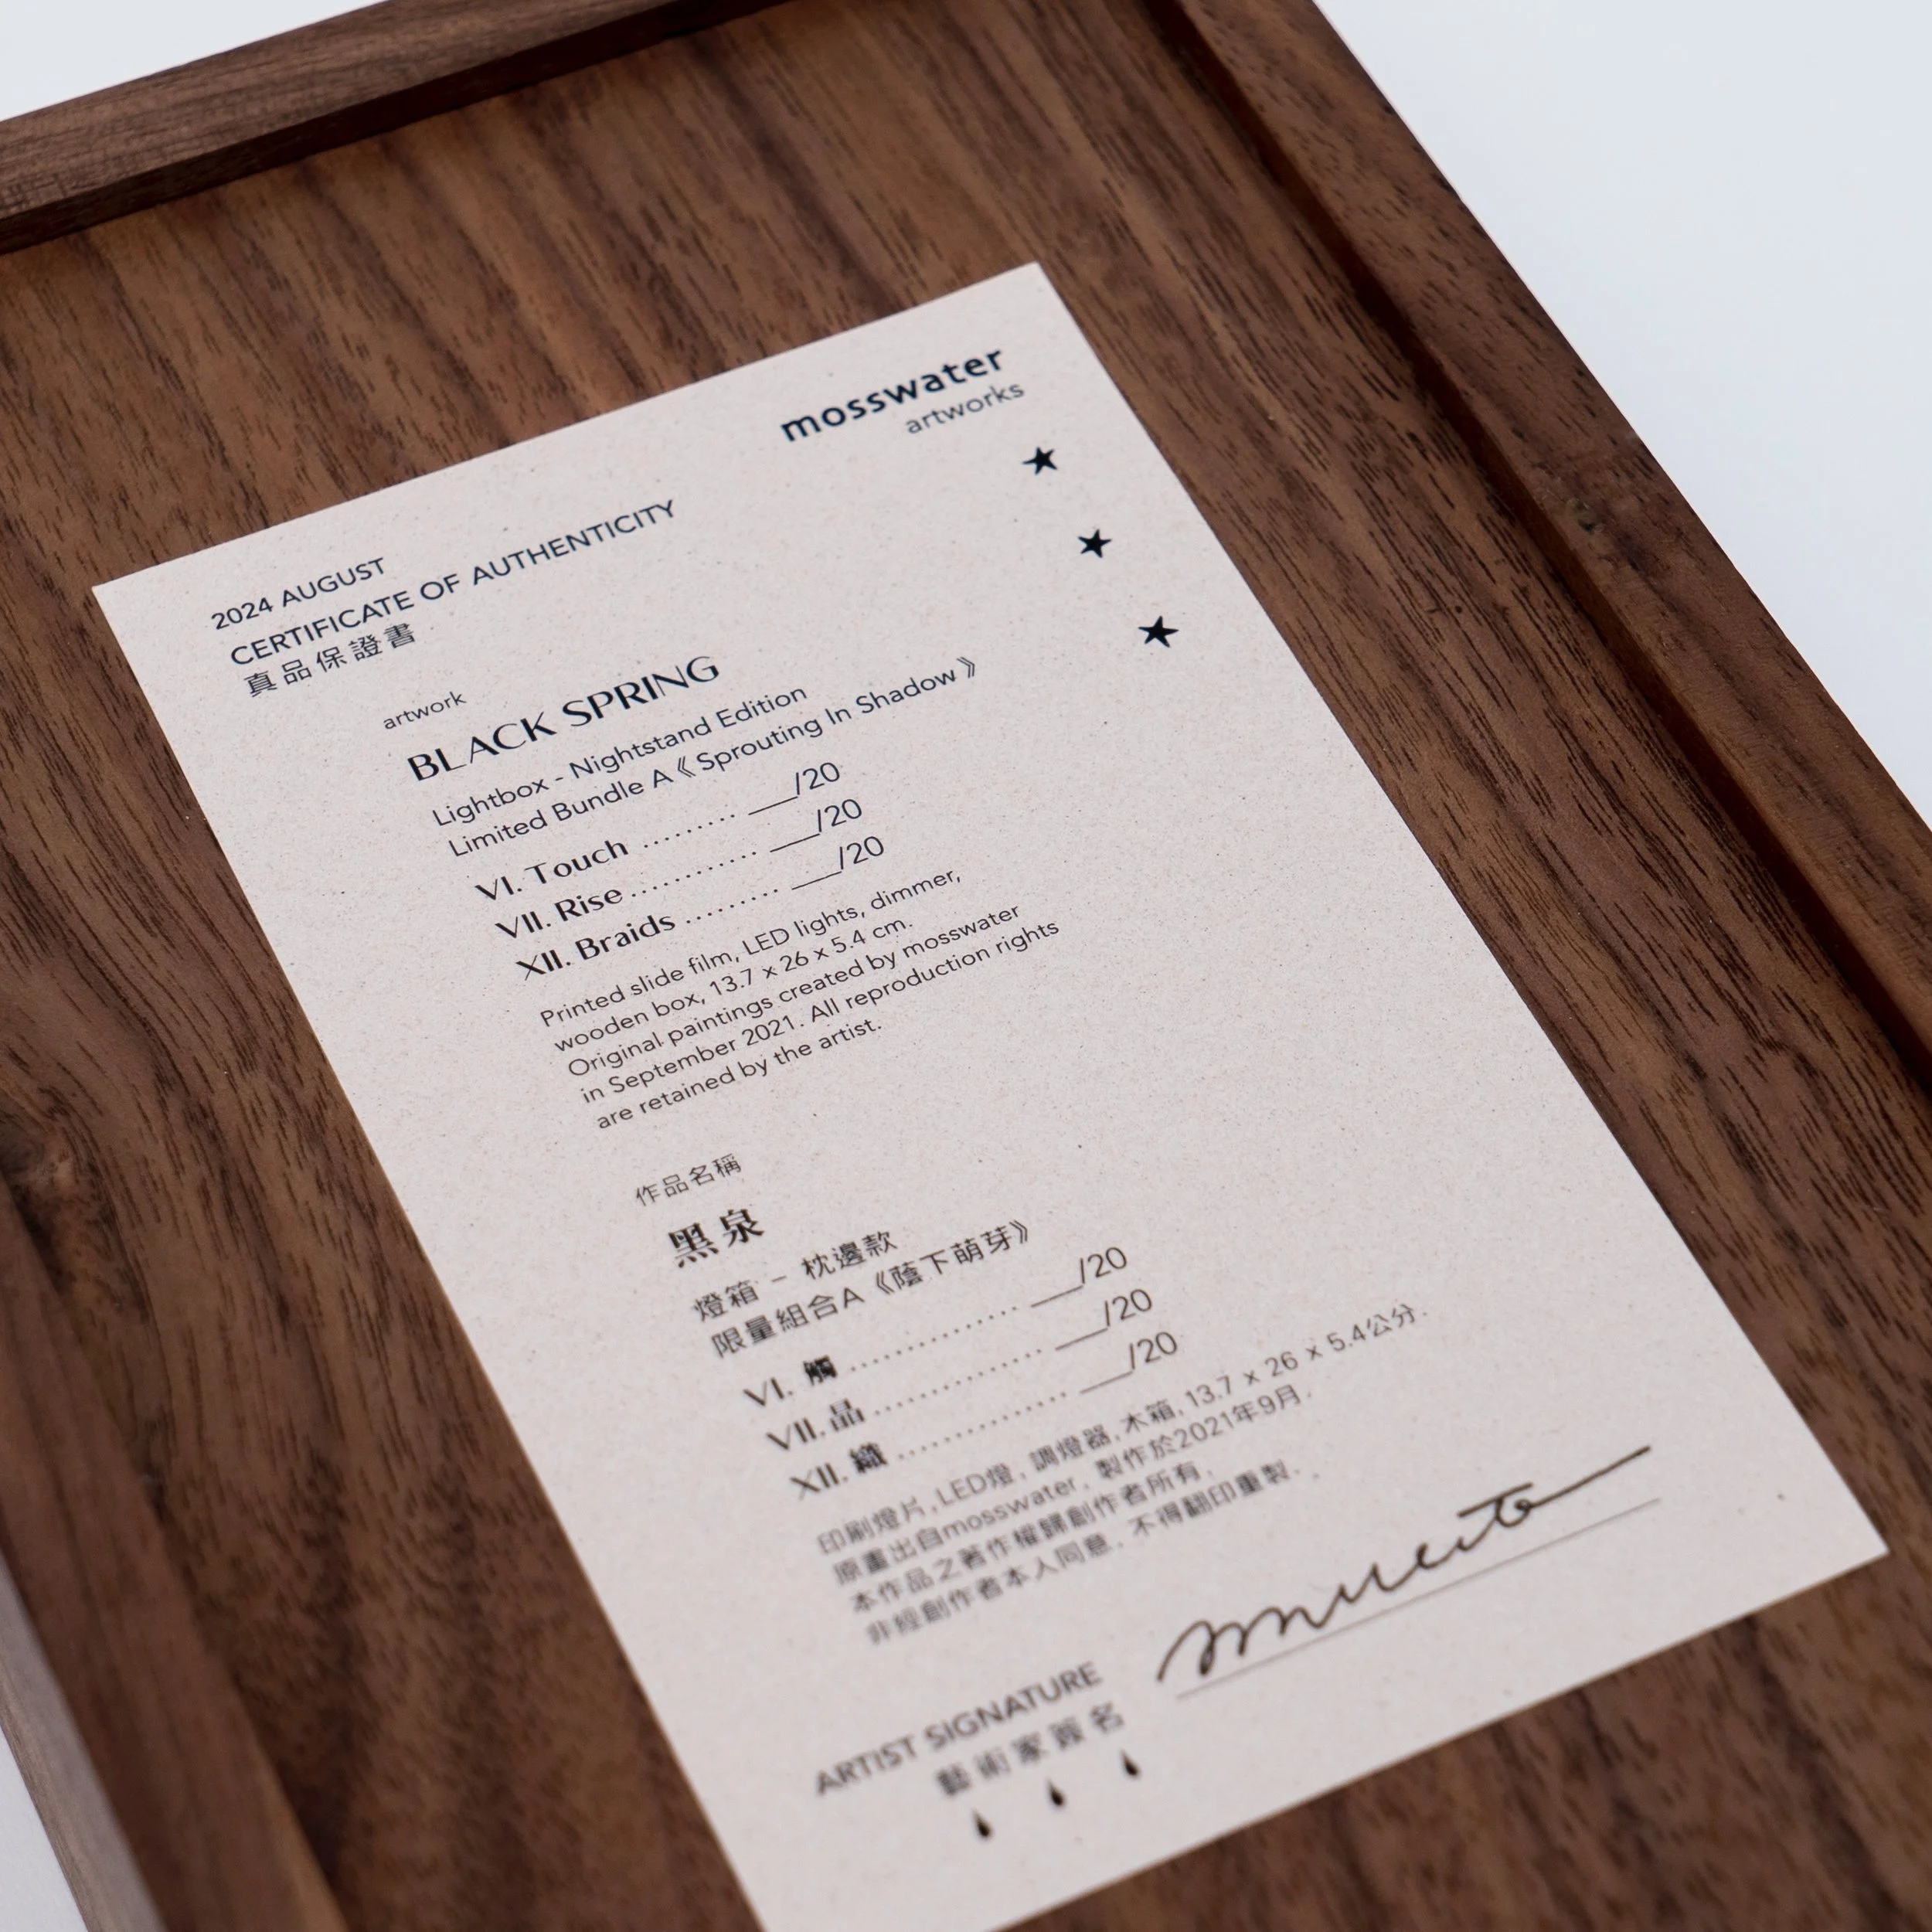 mosswater
artworks
2024 AUGUST
CERTIFICATE OF AUTHENTICITY
真品保證書
artwork
BLACK SPRING
Lightbox - Nightstand Edition
Limited Bundle A《 Sprouting In Shadow 》
VI. Touch ......... ___/20
VII. Rise ............ ___/20
XII. Braids ......... ___/20
Printed slide film, LED lights, dimmer,
wooden box, 13.7 x 26 x 5.4 cm.
Original paintings created by mosswater
in September 2021. All reproduction rights
are retained by the artist.
作品名稱
黑泉
燈箱 – 枕邊款
限量組合A《蔭下萌芽》
VI. 觸 ................ ___/20
VII. 晶 ................ ___/20
XII. 織 ................ ___/20
印刷燈片, LED燈, 調燈器, 木箱, 13.7 x 26 x 5.4公分.
原畫出自mosswater, 製作於2021年9月.
本作品之著作權歸創作者所有,
非經創作者本人同意, 不得翻印重製.
ARTIST SIGNATURE
藝術家簽名